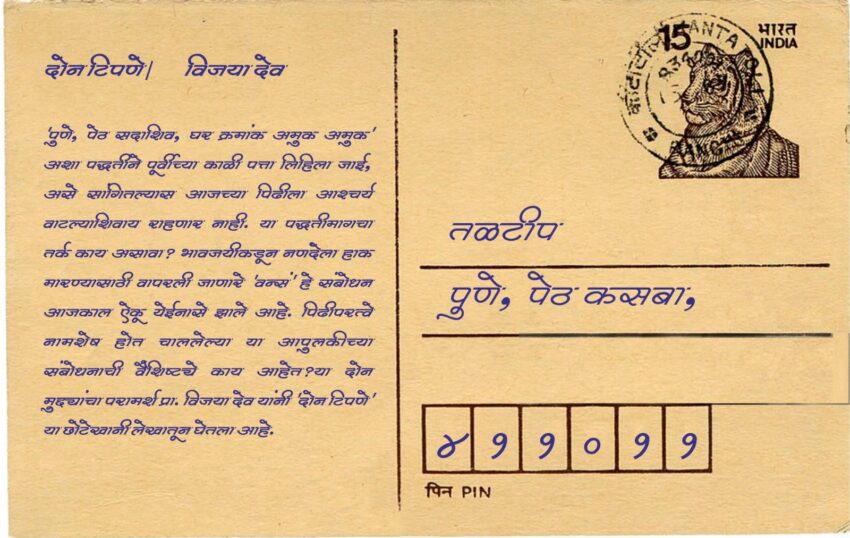 दोन टिपणे| विजया देव
'पुणे, पेठ सदाशिव, घर क्रमांक अमुक अमुक'
अशा पद्धतीने पूर्वीच्या काळी पत्ता लिहिला जाई,
असे सांगितल्यास आजच्या पिढीला आश्चर्य
वाटल्याशिवाय राहणार नाही. या पद्धतीमागचा
तर्क काय असावा? भावजयीकडून नणदेला हाक
मारण्यासाठी वापरली जाणारे 'वन्सं' हे संबोधन
आजकाल ऐकू येईनासे झाले आहे. पिढीपरत्वे
नामशेष होत चाललेल्या या आपुलकीच्या
संबोधनाची वैशिष्टचे काय आहेत?या दोन
मुद्द्यांचा परामर्श प्रा. विजया देव यांनी 'दोन टिपणे'
या छोटेखानी लेखातून घेतला आहे.
15
भारत
INDIA
तळटीप
पुणे, पेठ कसबा,
४११०११
पिन PIN